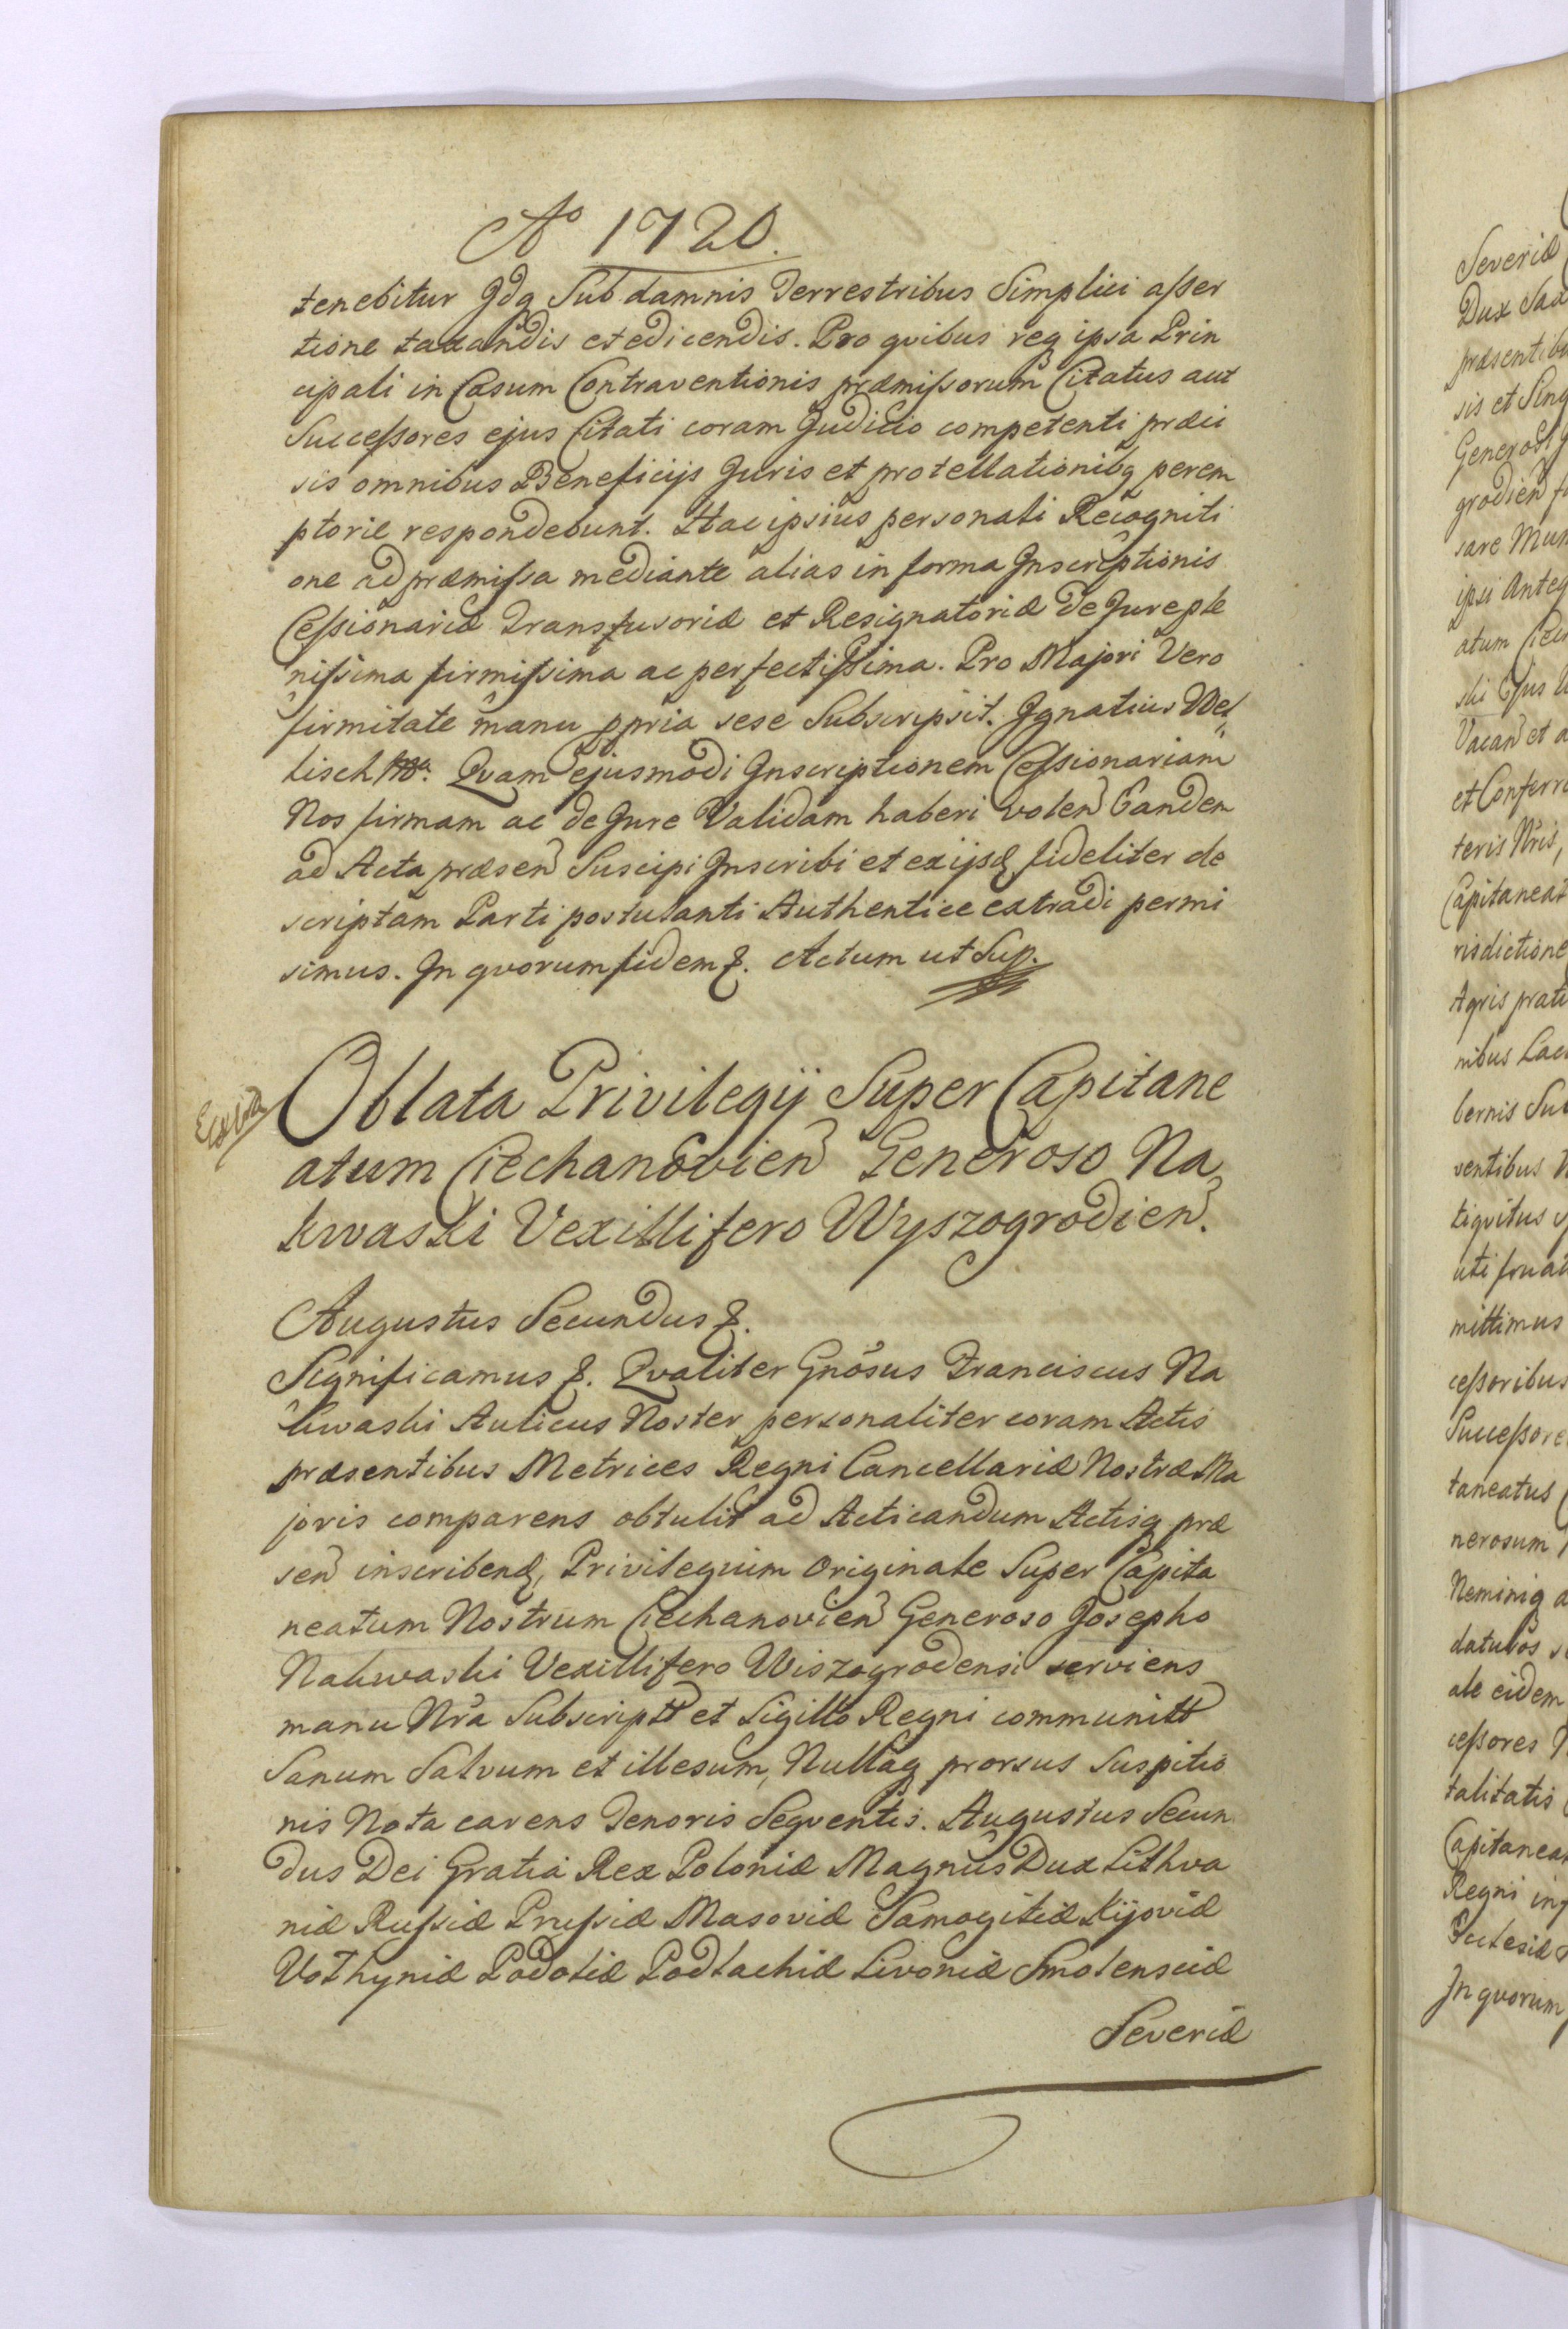 Ao 1720.
tenebitur Idq Sub damnis Terrestribus Simplici asser
tione taxandis et edicendis. Pro qvibus req ipsa Prin
cipali in Casum Contraventionis præmissorum Citatus aut
Successores ejus Citati coram Judicio competenti præci
sis omnibus Beneficijs Juris et protellationibq perem
ptorie respondebunt. Hac ipsius personali Recogniti
one ad præmissa mediante alias in forma Inscriptionis
Cessionariæ Transfusoriæ et Resignatoriæ de Jure ple
nissima firmissima ac perfectissima. Pro Majori Vero
firmitate manu ppria sese Subscripsit. Ignatius Wet
lisch Qvam ejusmodi Inscriptionem Cessionariam
Nos firmam ac de Jure Validam haberi volen Eanden
ad Acta præsen Suscipi Inscribi et ex ijsd fideliter de
scriptam Parti postulanti Authentice extradi permi
simus. In qvorum fidem &. Actum ut Sup.
Oblata Privilegij Super Capitane
atum Ciechanovien Generoso Na
kwaski Vexillifero Wyszogrodien.
Augustus Secundus &.
Significamus &. Qvaliter Gnosus Franciscus Na
kwaski Aulicus Noster personaliter coram Actis
præsentibus Metrices Regni Cancellariæ Nostræ Ma
joris comparens obtulit ad Acticandum Actisq præ
sen inscribend, Privilegium Originale Super Capita
neatum Nostrum Ciechanovien Generoso Josepho
Nakwaski Vexillifero Wiszogrodensi serviens
manu Nra Subscriptt et Sigillo Regni communitt
Sanum Salvum et illesum, Nullaq prorsus Suspitio
nis Nota carens Tenoris Seqventis. Augustus Secun
dus Dei Gratia Rex Poloniæ Magnus Dux Lithva
niæ Russiæ Prussiæ Masoviæ Samogitiæ Kijoviæ
Volhyniæ Podoliæ Podlachiæ Livoniæ Smolensciæ
Severiæ
Severiæ
Dux Sax
præsentibu
sis et Sing
Generosi
grodien
sare Mun
ipsi Anteq
atum Ciec
ski Ejus
Vacan et a
et Conferr
teris Nris,
Capitaneat
risdictione
Agris prati
nibus Lac
bernis Su
ventibus
tiqvitus
uti frua
mittimus
cessoribus
Successore
taneatus
nerosum
Neminiq a
daturos
ale eidem
cessores
talitatis
Capitanea
Regni
Ecclesiæ
In qvorum